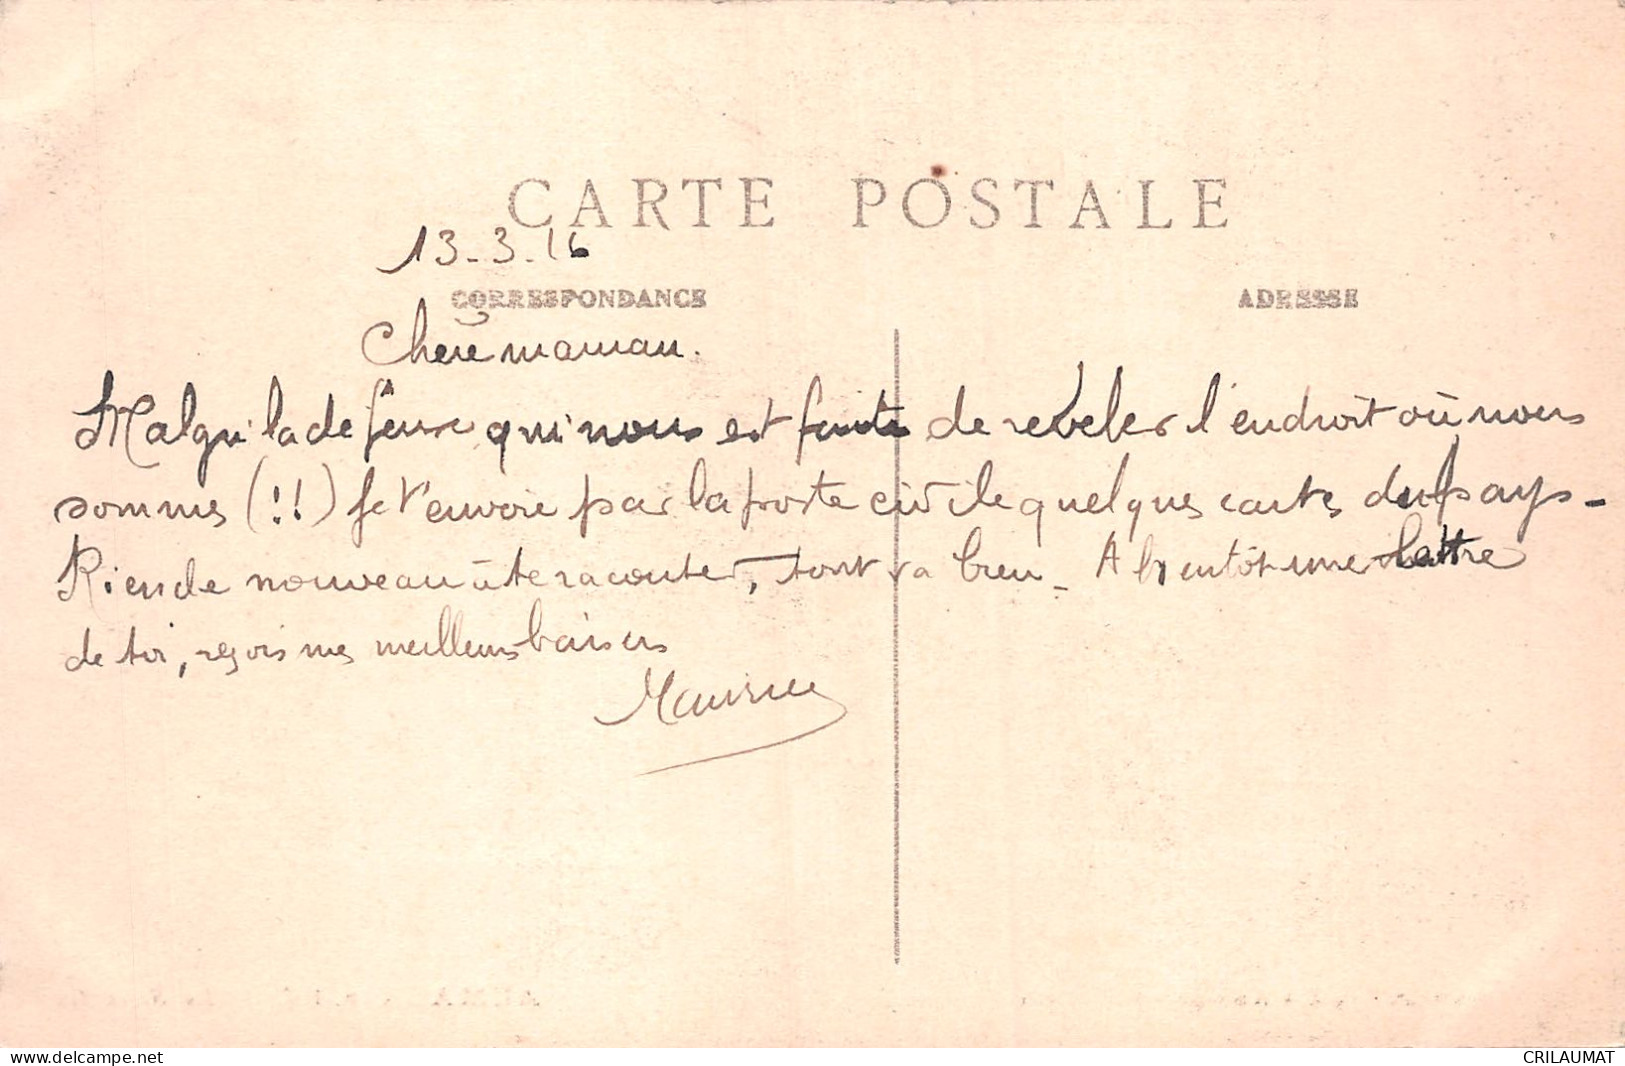 CARTE POSTALE
13-3-16
CORRESPONDANCE
ADRESSE
Chère maman.
Malgré la défense qui nous est faite de reveler l'endroit où nous
sommes (!!) je t'envoie par la poste civile quelques cartes du pays-
Rien de nouveau à te raconter, tout va bien - A bientôt une lettre
de toi, reçois mes meilleurs baisers
Maurice
www.delcampe.net
CRILAUMAT